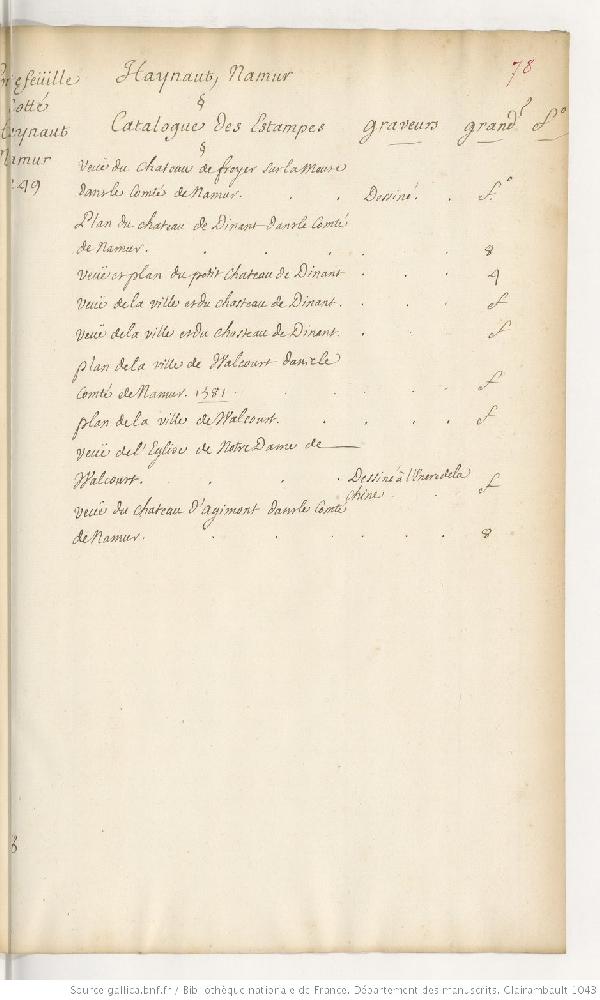 78
efeüille
Cotté
aynaut
Namur
49
Haynaut, Namur
§
Catalogue Des Estampes graveurs grandr. fo.
§
Veüe du chateau de froyer sur la Meuse
dans le Comté de Namur. . . Dessiné. . f.o
Plan du chateau de Dinant dans le Comté
de Namur. . . . . . . 8
Veüe et plan du petit chateau de Dinant . . . 4
Veüe de la ville et du chasteau de Dinant. . . . f
Veüe de la ville et du chasteau de Dinant. . . . f
plan de la ville de Walcourt dans le
Comté de Namur. 1581. . . . . f
plan de la ville de Walcourt. . . . . f
Veüe de l'Eglise de Notre Dame de —
Walcourt. . . . Dessiné à l'Encre de la
chine . . f
Veüe du chateau d'agimont dans le Comté
de Namur. . . . . . . 8
Source gallica.bnf.fr / Bibliothèque nationale de France. Département des manuscrits. Clairambault 1043